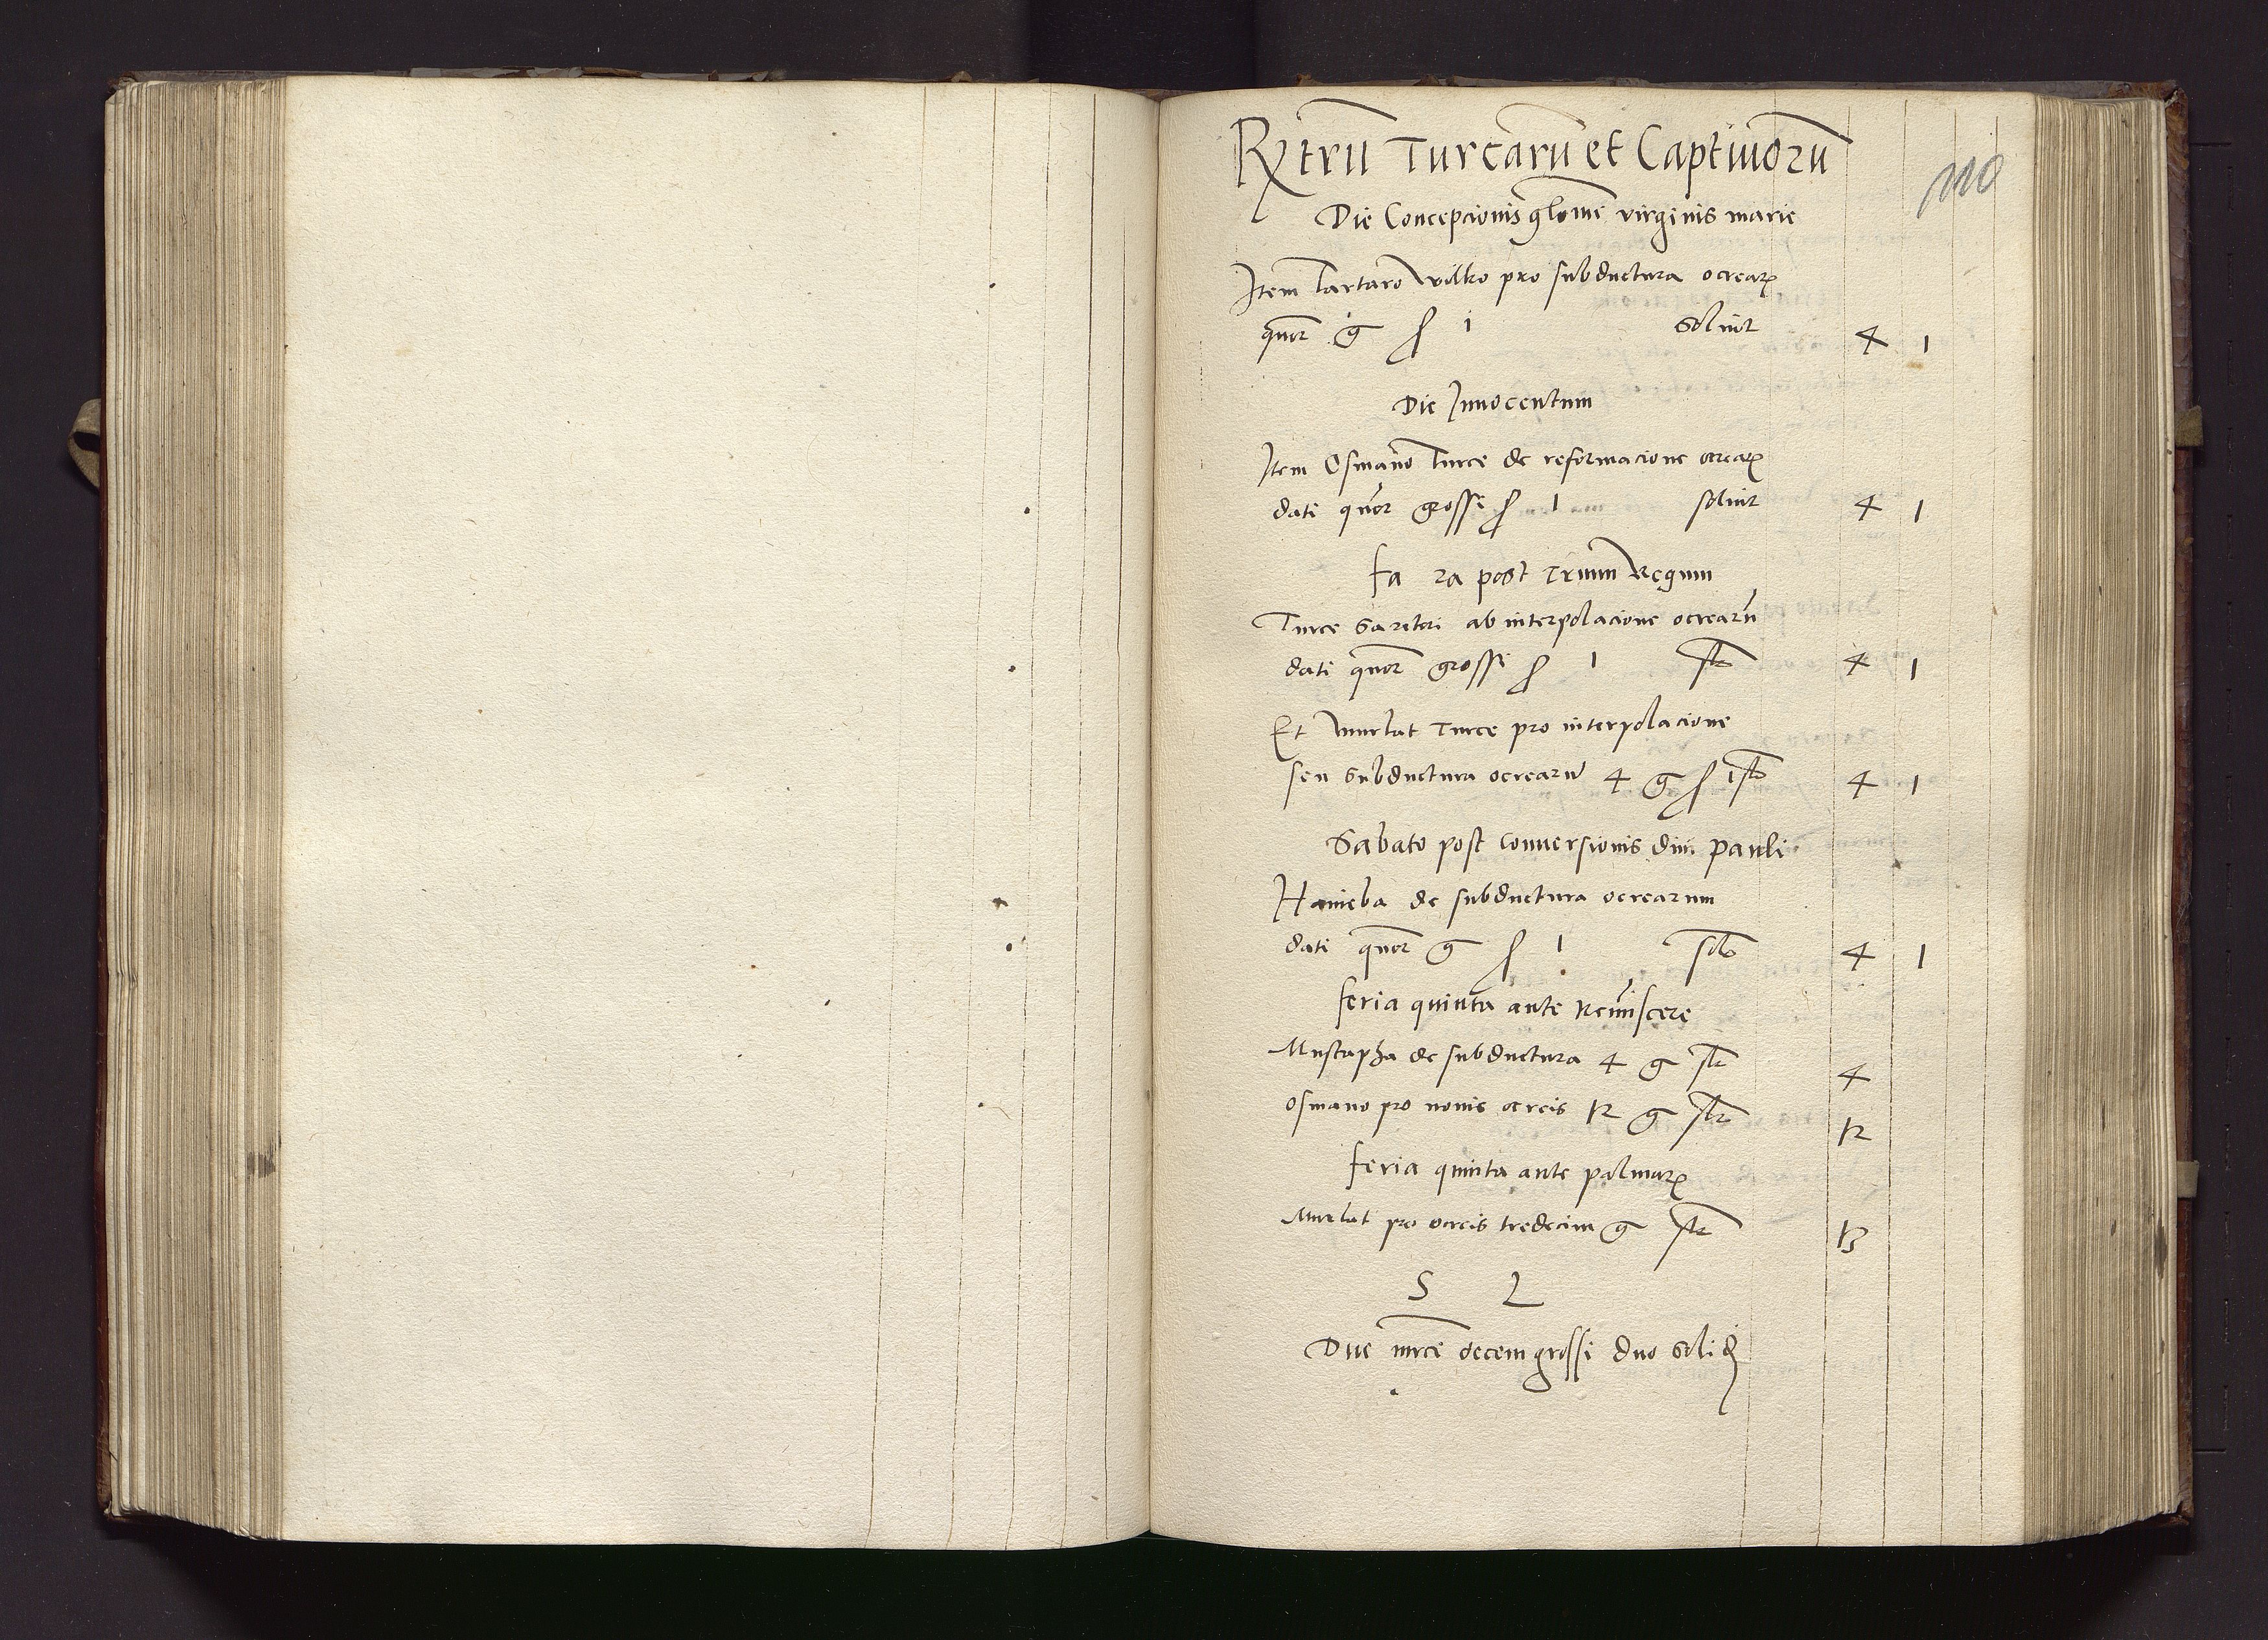 Rxtrū Turcarū et Captiuorū
110
Die Concepcionis gloriose virginis marie
Item Tartaro wilko pro subductura ocrear
quor g ẜ 1 soluit 4 1
Die Innocentum
Item Osmano Turce de reformacione ocrear
dati quor grossi ẜ 1 soluit 4 1
fa 2a post Trium Regum
Turce Sartori ab interpolacione ocrearū
dati quor grossi ẜ 1 slt 4 1
Et Murlat Turce pro interpolacione
seu subductura ocrearū 4 g ẜ 1 slt 4 1
Sabato post conuersionis diui Pauli
Hanieba de subductura ocrearum
dati quor g ẜ 1 slt 4 1
feria quinta ante Remīscere
Mustapha de subductura 4 g slt 4
Osmano pro nouis ocreis 12 g slt 12
feria quinta ante palmar
Murlat pro ocreis tredecim g slt 13
S L
Due mrce decem grossi duo solid